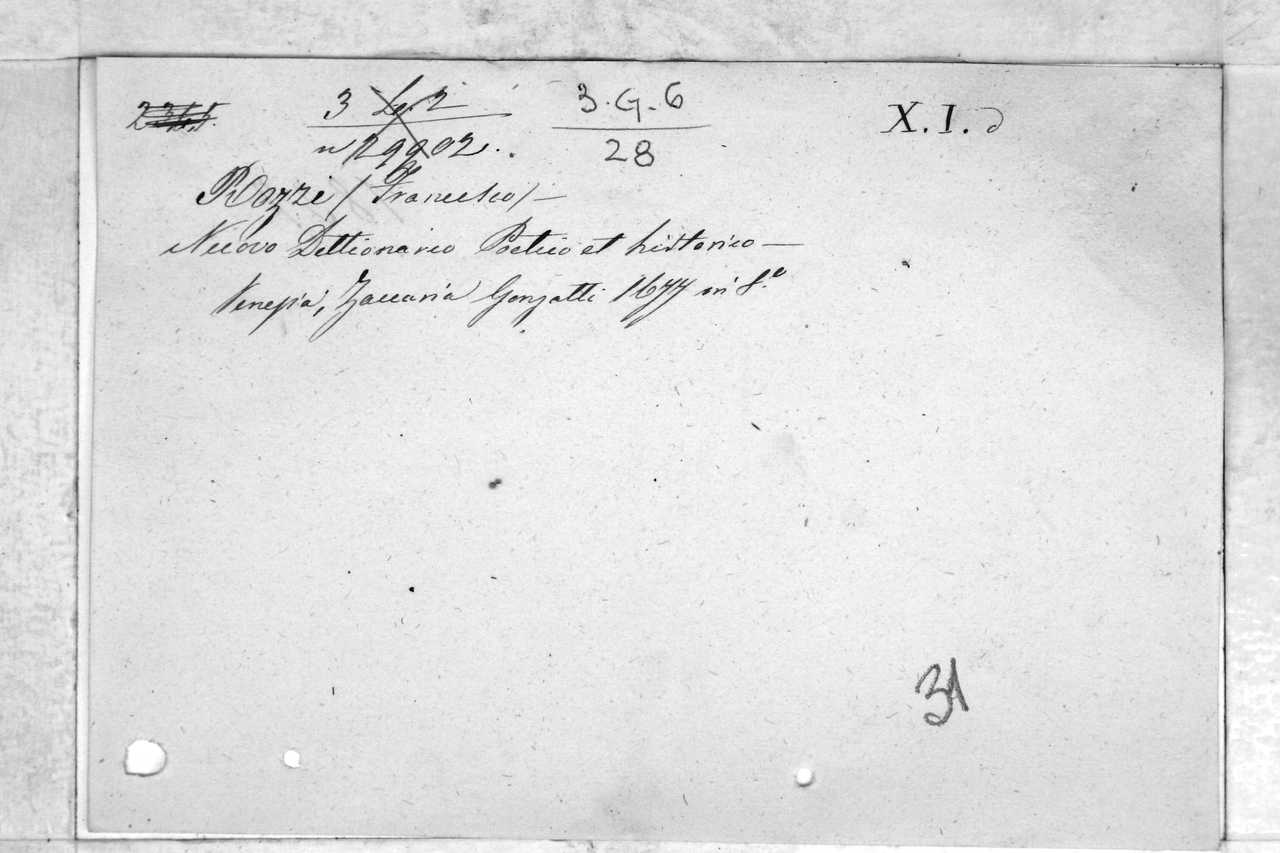 3 G. 2 3.G.6 X.I.
n 29902. 28
Pozzi (Francesco) —
Nuovo Dittionario Poetico et historico —
Venezia, Zaccaria Gonzatti 1677 in 8.º
31